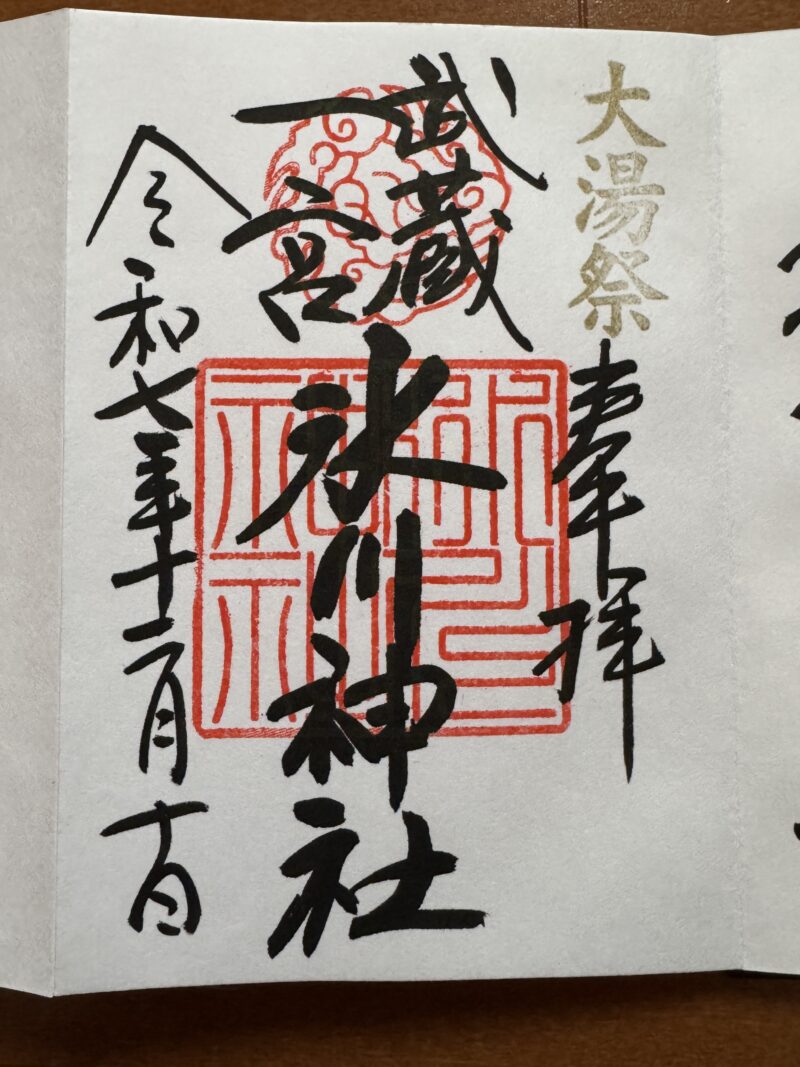 大湯祭
奉拝
武蔵
一宮
氷川神社
令和七年十二月十日